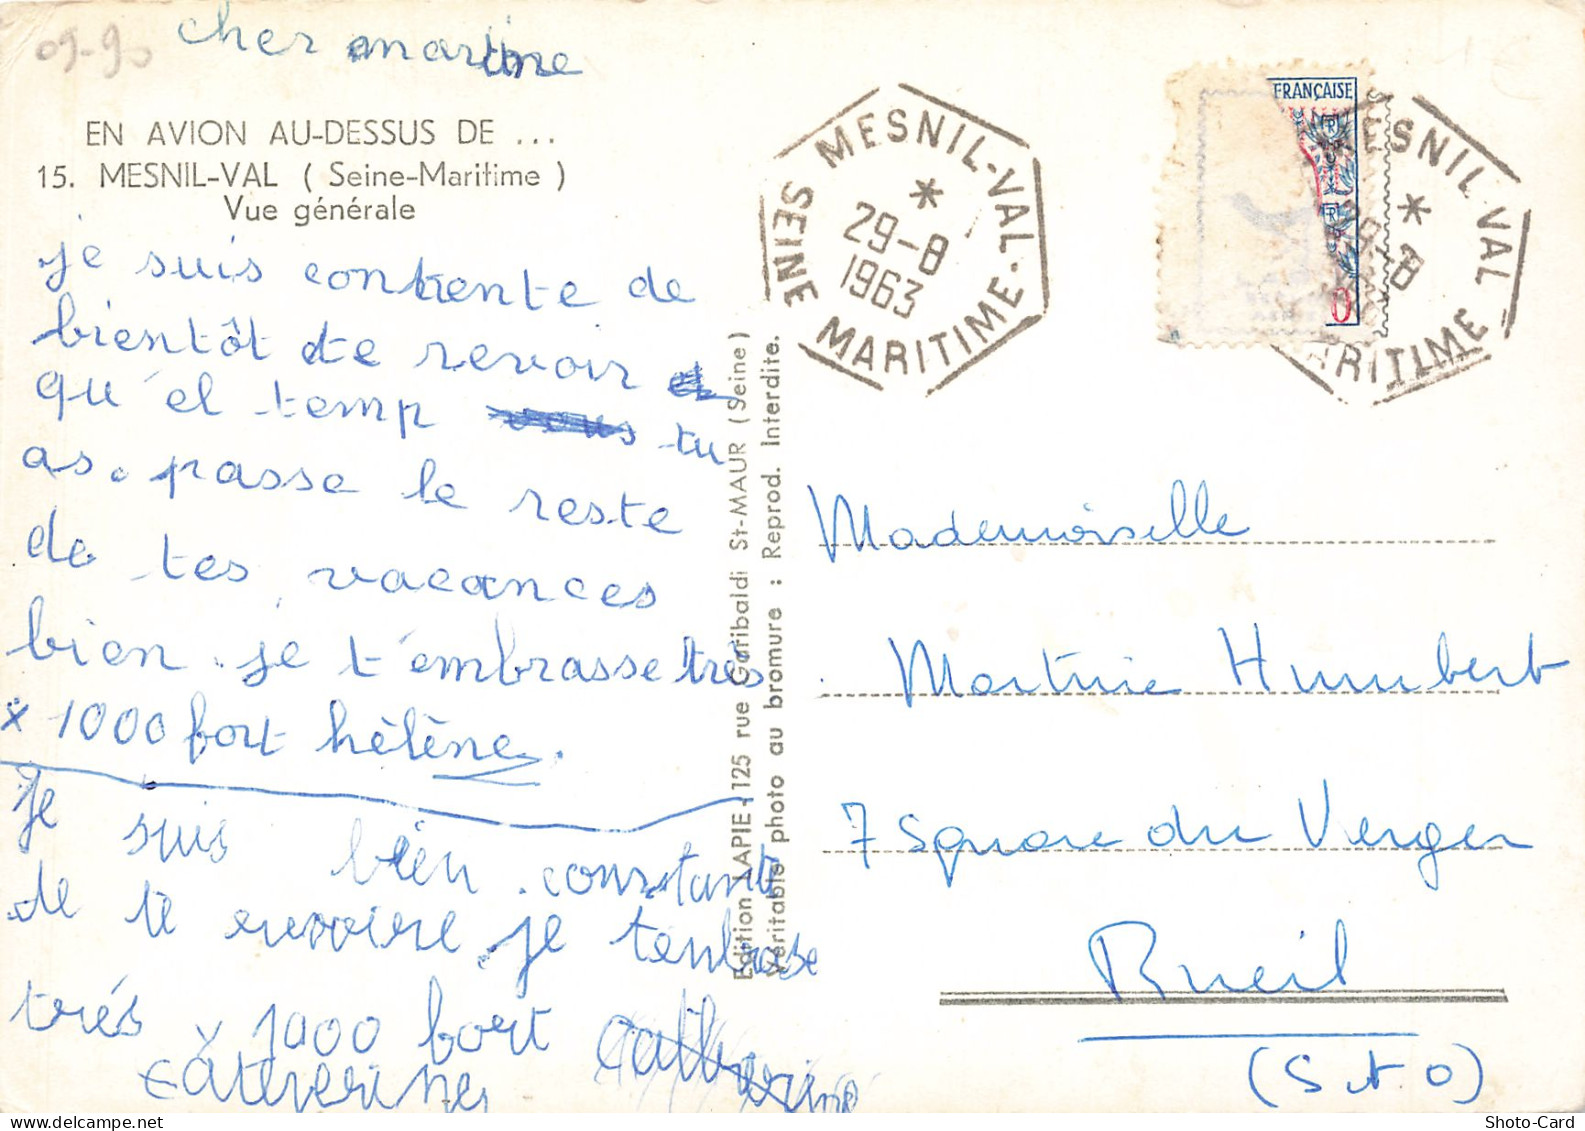 09-95
cher martine
EN AVION AU-DESSUS DE ...
15. MESNIL-VAL ( Seine-Maritime )
Vue générale
je suis contente de
bientôt de revoir
qu'él temp tu
as. passe le reste
de tes vacances
bien. je t'embrasse très
x 1000 fort hélène.
Je suis bien constante
de te revoire je tenbrase
trés x 1000 fort Catherine
Catherine
Edition LAPIE - 125 rue Garibaldi St-MAUR (Seine)
Véritable photo au bromure : Reprod. Interdite.
MESNIL-VAL
*
29-8
1963
SEINE MARITIME
FRANÇAISE
RF
RF
0
MESNIL VAL
*
29-8
MARITIME
Mademoiselle
Martine Humbert
7 Square du Verger
Rueil
(S et O)
Shoto-Card